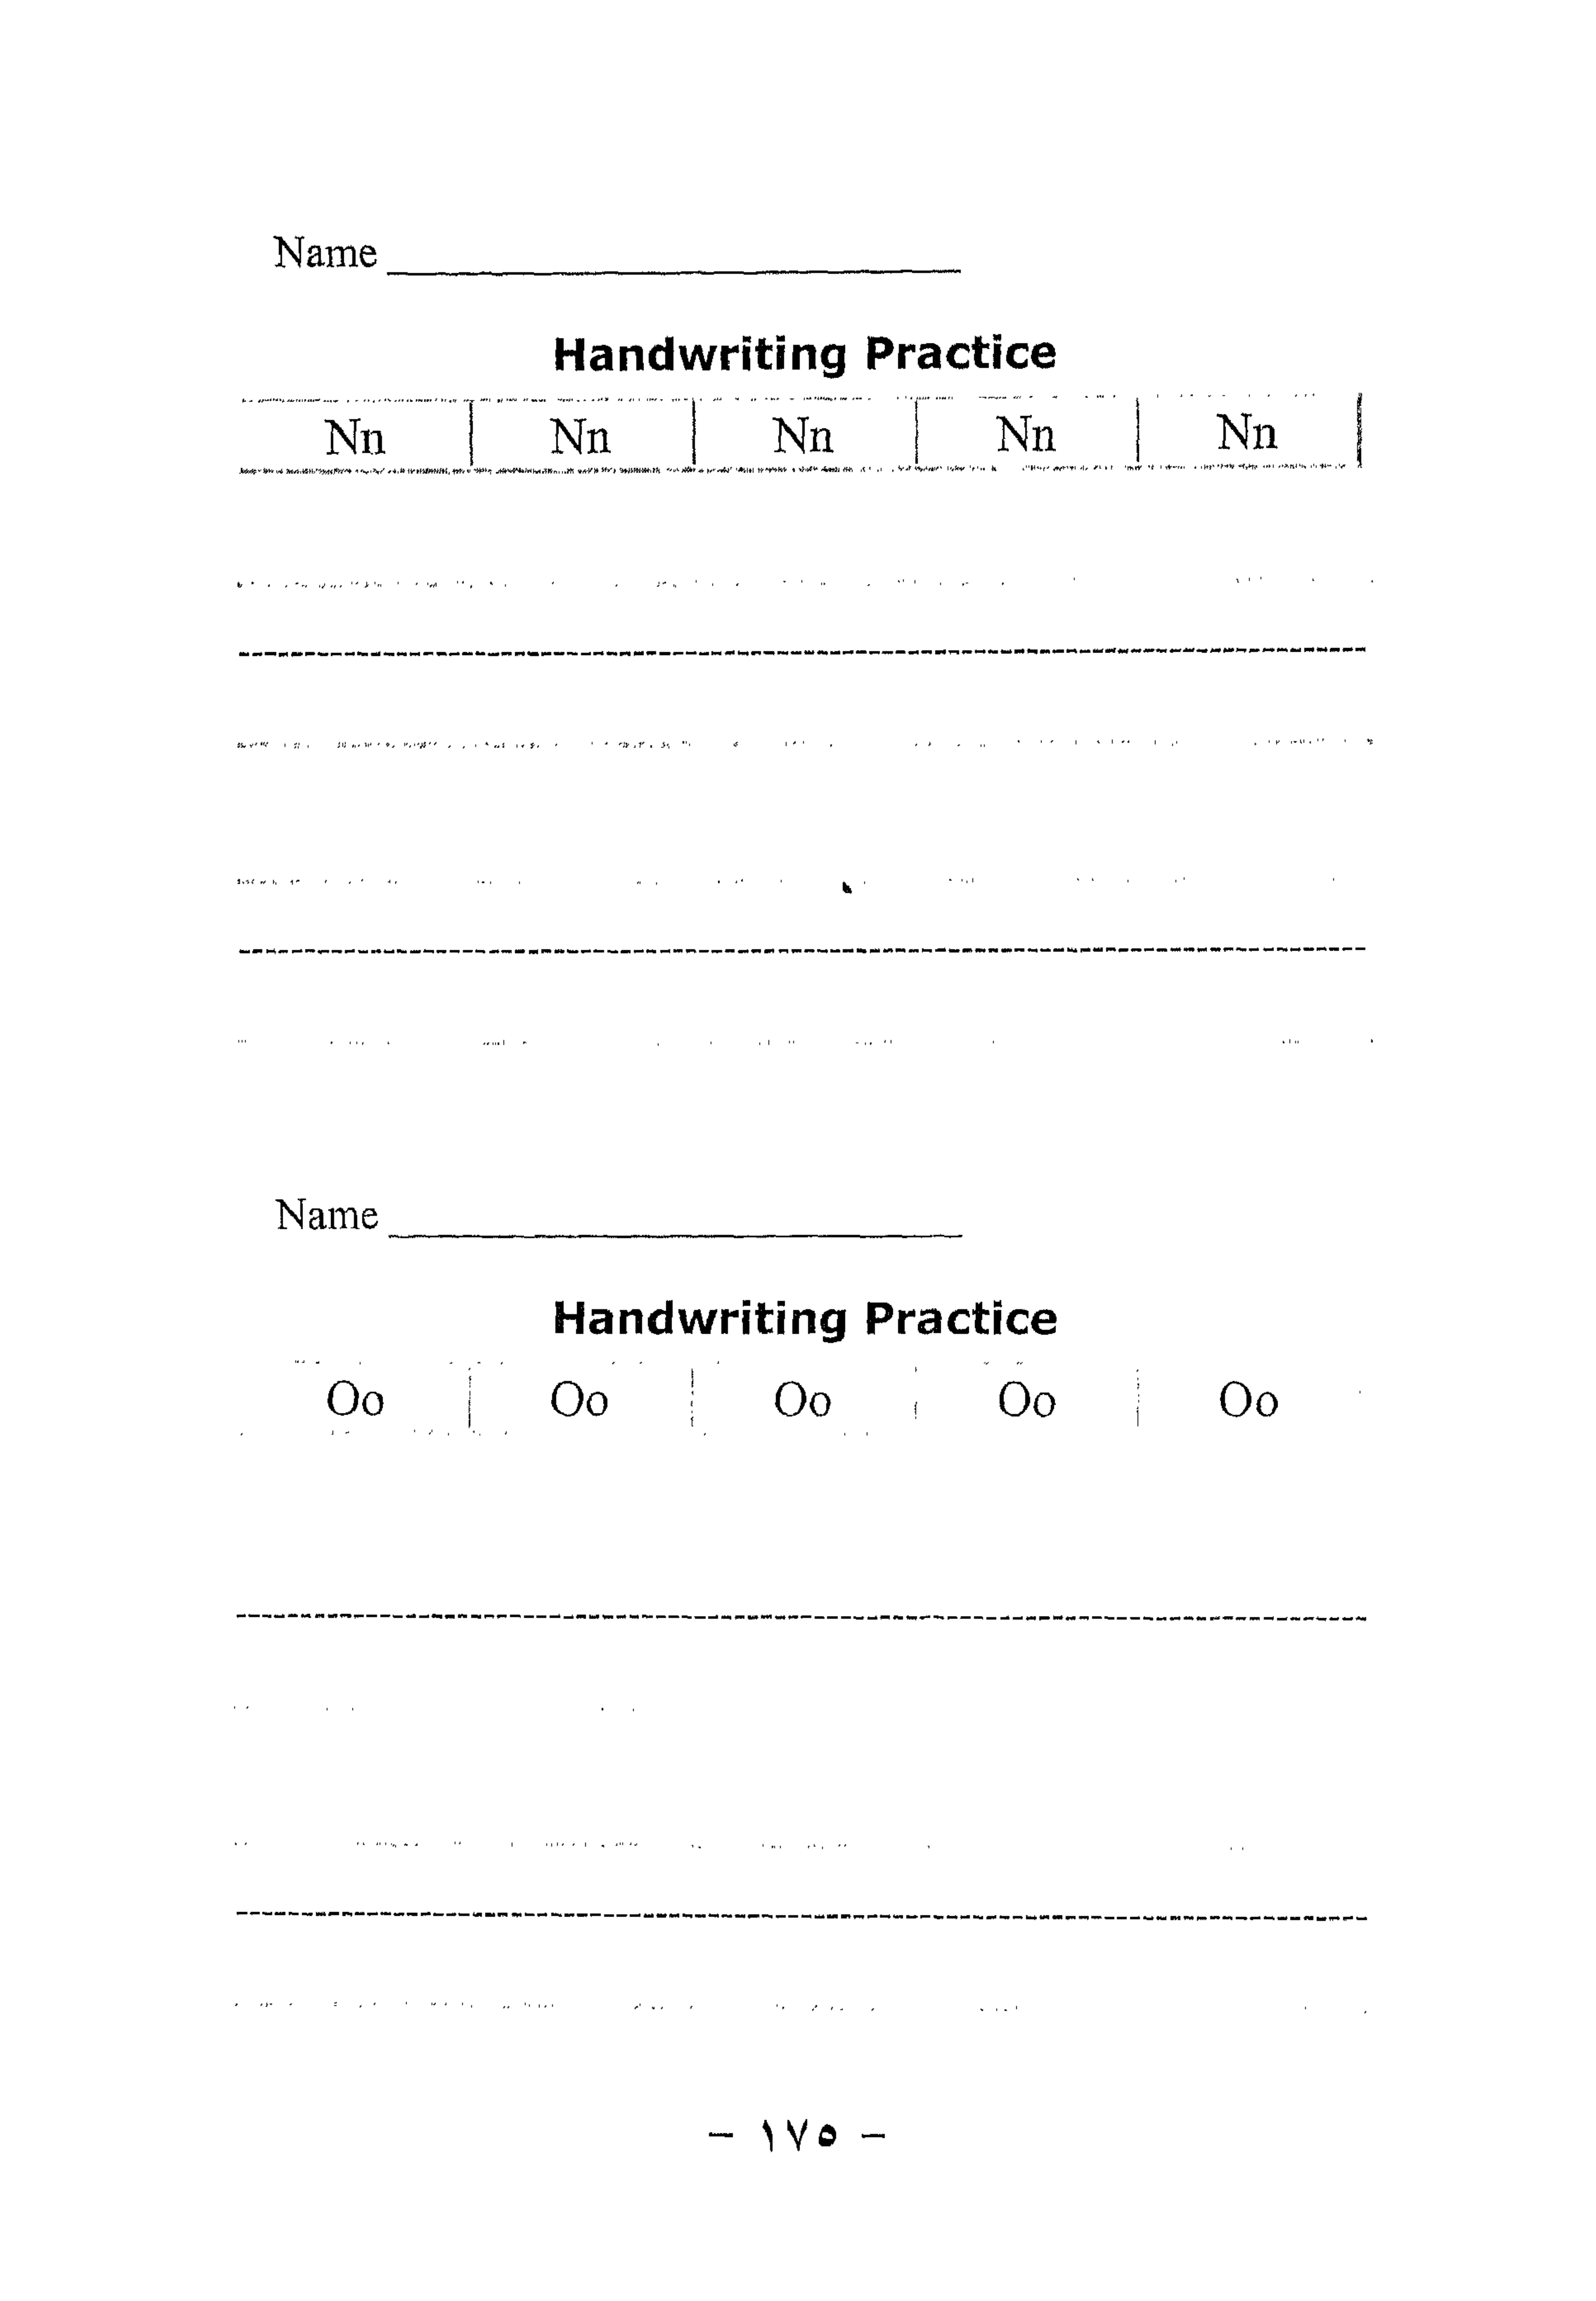 Name
Handwriting Practice
Nn Nn Nn Nn Nn
Name
Handwriting Practice
Oo Oo Oo Oo Oo
- ١٧٥ -